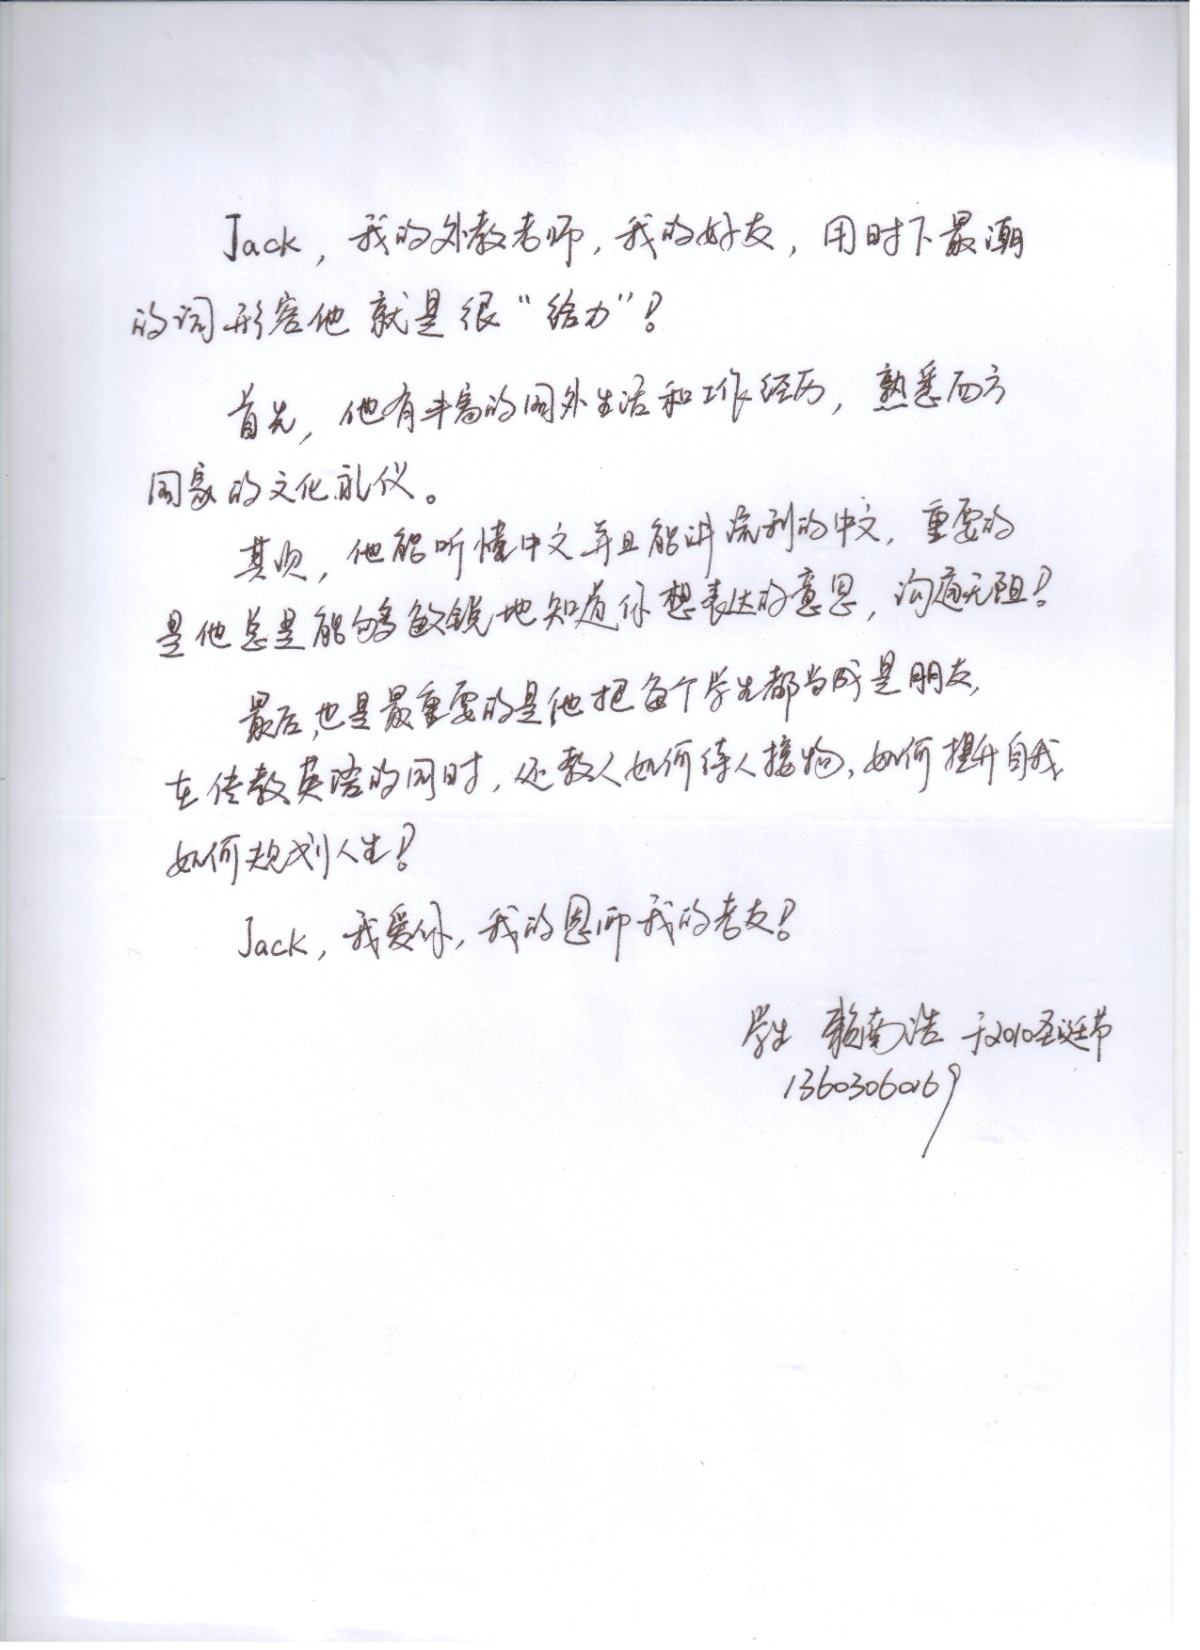 Jack，我的外教老师，我的好友，用时下最潮
的词形容他就是很“给力”！
首先，他有丰富的国外生活和工作经历，熟悉西方
国家的文化礼仪。
其次，他能听懂中文并且能讲流利的中文，重要的
是他总是能够敏锐地知道你想表达的意思，沟通无阻！
最后，也是最重要的是他把每个学生都当成是朋友，
在传教英语的同时，还教人如何待人接物、如何提升自我，
如何规划人生！
Jack，我爱你，我的恩师我的老友！
学生 赖南浩 于2010圣诞节
13603060169